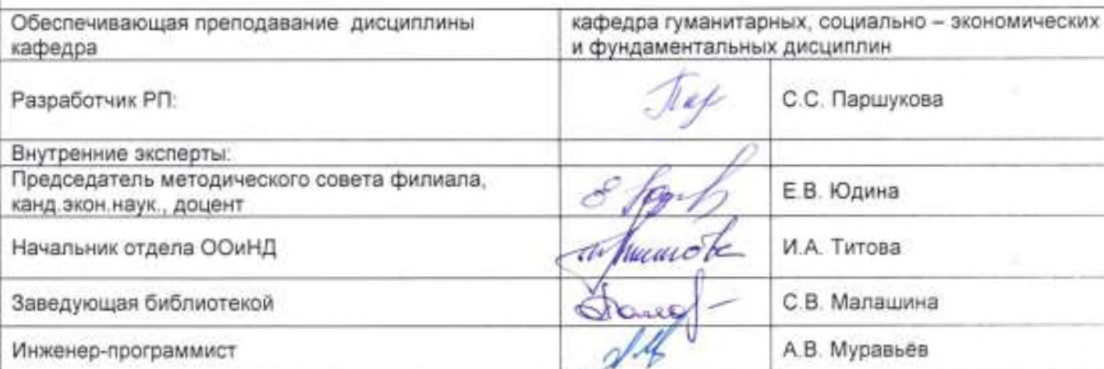 Обеспечивающая преподавание дисциплины
кафедра
кафедра гуманитарных, социально – экономических
и фундаментальных дисциплин
Разработчик РП:
С.С. Паршукова
Внутренние эксперты:
Председатель методического совета филиала,
канд.экон.наук., доцент
Е.В. Юдина
Начальник отдела ООиНД
И.А. Титова
Заведующая библиотекой
С.В. Малашина
Инженер-программист
А.В. Муравьёв